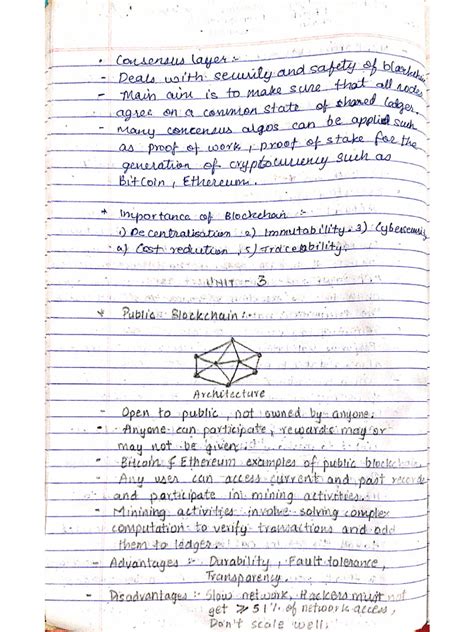 • Consensus layer :-
- Deals with security and safety of blockchain
- Main aim is to make sure that all nodes
agree on a common state of shared ledger.
- Many concensus algos can be applied such
as proof of work, proof of stake for the
generation of cryptocurrency such as
Bitcoin, Ethereum.
* Importance of Blockchain :-
1) Decentralisation 2) Immutability 3) Cybersecurity
4) Cost reduction, 5) Traceability.
UNIT - 3
* Public Blockchain :-
Architecture
- Open to public, not owned by anyone.
- Anyone can participate, rewards may or
may not be given.
- Bitcoin & Ethereum examples of public blockchain
- Any user can access current and past records
and participate in mining activities.
- Minining activities involve solving complex
computation to verify transactions and add
them to ledger.
- Advantages :- Durability, Fault tolerance,
Transparency.
- Disadvantages :- Slow network, Hackers must not
get ≥ 51% of network access,
Don't scale well.